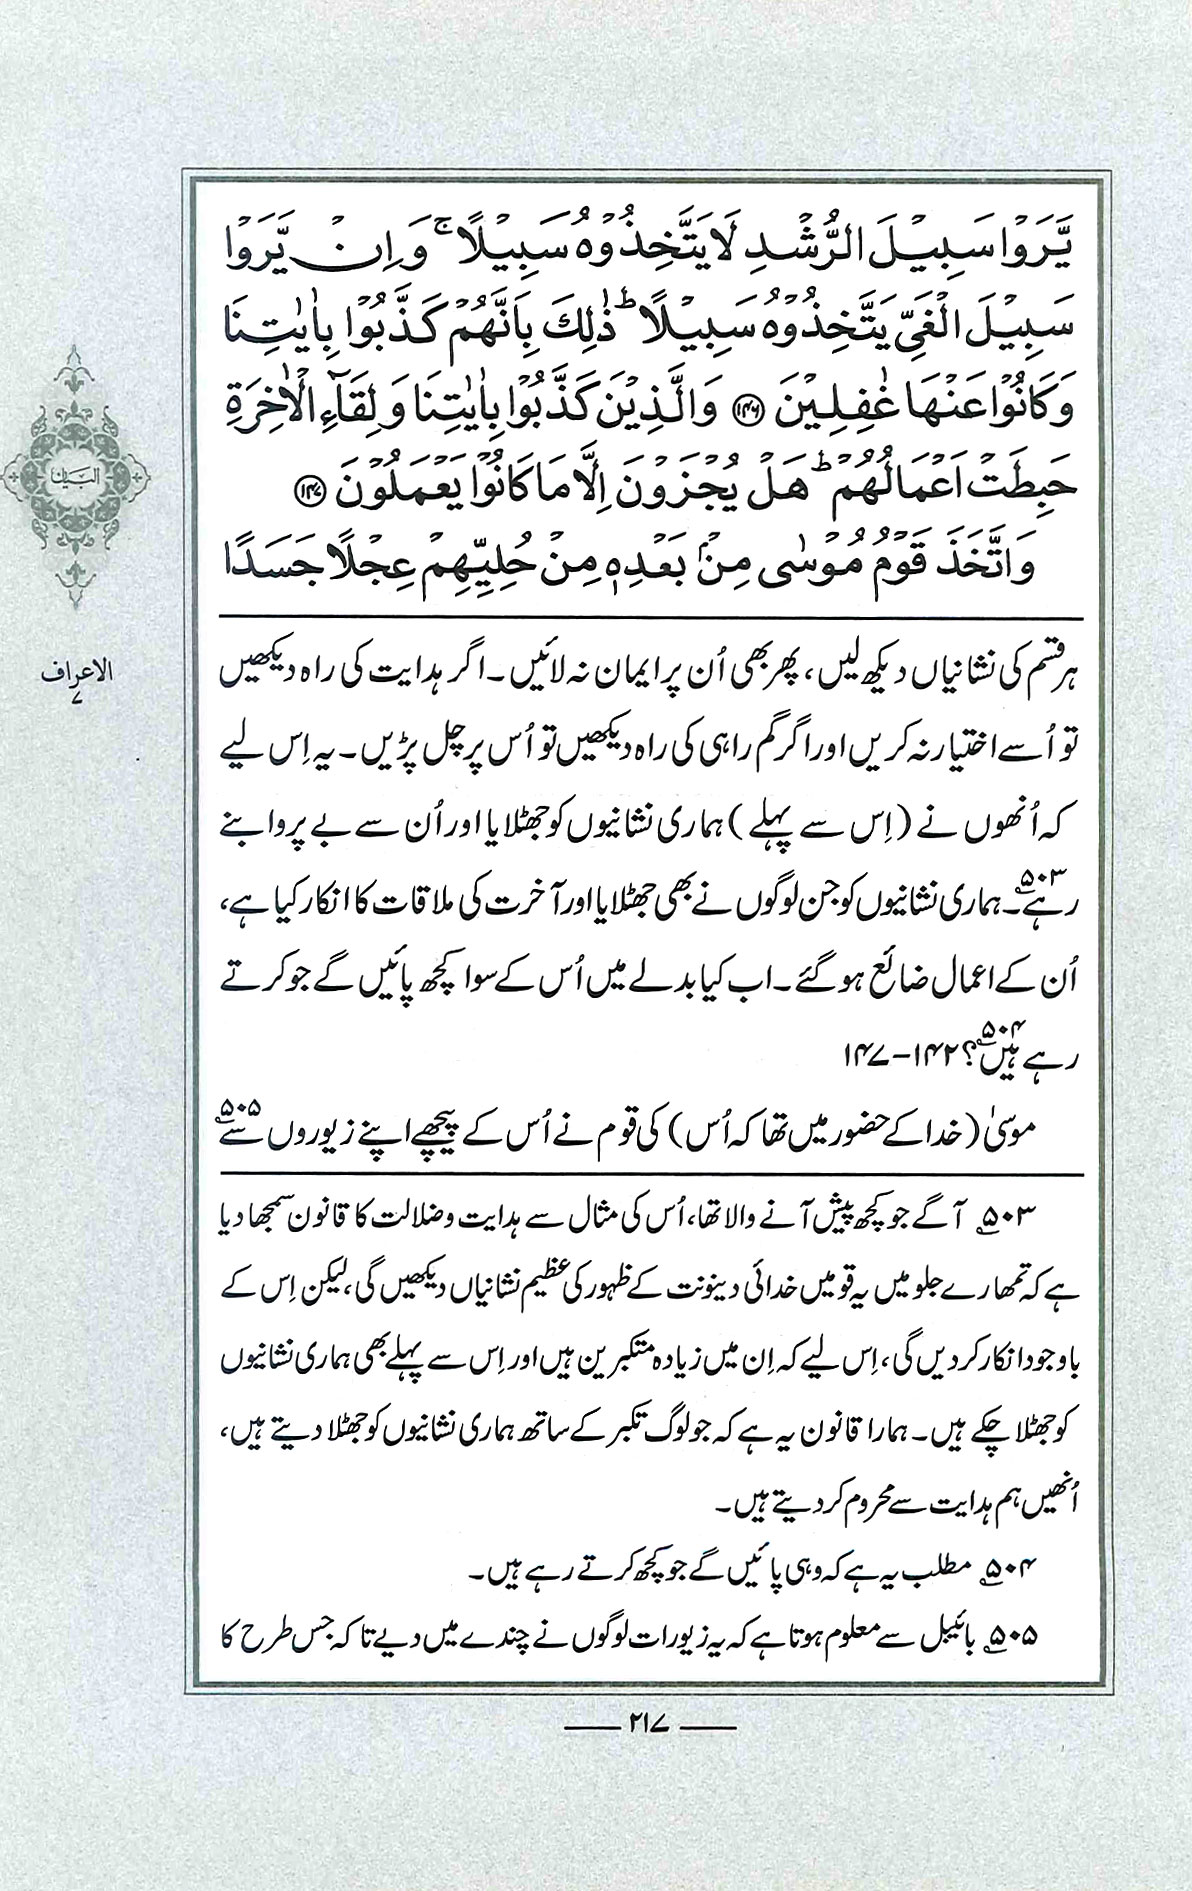 يَّرَوۡا سَبِيۡلَ الرُّشۡدِ لَا يَتَّخِذُوۡهُ سَبِيۡلًا ۚ وَاِنۡ يَّرَوۡا
سَبِيۡلَ الۡغَىِّ يَتَّخِذُوۡهُ سَبِيۡلًا ؕ ذٰلِكَ بِاَنَّهُمۡ كَذَّبُوۡا بِاٰيٰتِنَا
وَكَانُوۡا عَنۡهَا غٰفِلِيۡنَ ﴿۱۴۶﴾ وَالَّذِيۡنَ كَذَّبُوۡا بِاٰيٰتِنَا وَلِقَآءِ الۡاٰخِرَةِ
حَبِطَتۡ اَعۡمَالُهُمۡ ؕ هَلۡ يُجۡزَوۡنَ اِلَّا مَا كَانُوۡا يَعۡمَلُوۡنَ ﴿۱۴۷﴾
وَاتَّخَذَ قَوۡمُ مُوۡسٰى مِنۡۢ بَعۡدِهٖ مِنۡ حُلِيِّهِمۡ عِجۡلًا جَسَدًا
البیان
الاعراف
۷
ہر قسم کی نشانیاں دیکھ لیں، پھر بھی اُن پر ایمان نہ لائیں۔ اگر ہدایت کی راہ دیکھیں
تو اُسے اختیار نہ کریں اور اگر گم راہی کی راہ دیکھیں تو اُس پر چل پڑیں۔ یہ اِس لیے
کہ اُنھوں نے (اِس سے پہلے) ہماری نشانیوں کو جھٹلایا اور اُن سے بے پروا بنے
رہے۔۵۰۳ ہماری نشانیوں کو جن لوگوں نے بھی جھٹلایا اور آخرت کی ملاقات کا انکار کیا ہے،
اُن کے اعمال ضائع ہو گئے۔ اب کیا بدلے میں اُس کے سوا کچھ پائیں گے جو کرتے
رہے ہیں؟۵۰۴ ۱۴۲-۱۴۷
موسیٰ (خدا کے حضور میں تھا کہ اُس) کی قوم نے اُس کے پیچھے اپنے زیوروں سے۵۰۵
۵۰۳؂ آگے جو کچھ پیش آنے والا تھا، اُس کی مثال سے ہدایت و ضلالت کا قانون سمجھا دیا
ہے کہ تمھارے جلو میں یہ قومیں خدائی دینونت کے ظہور کی عظیم نشانیاں دیکھیں گی، لیکن اِس کے
باوجود انکار کر دیں گی، اِس لیے کہ اِن میں زیادہ متکبرین ہیں اور اِس سے پہلے بھی ہماری نشانیوں
کو جھٹلا چکے ہیں۔ ہمارا قانون یہ ہے کہ جو لوگ تکبر کے ساتھ ہماری نشانیوں کو جھٹلا دیتے ہیں،
اُنھیں ہم ہدایت سے محروم کر دیتے ہیں۔
۵۰۴؂ مطلب یہ ہے کہ وہی پائیں گے جو کچھ کرتے رہے ہیں۔
۵۰۵؂ بائیبل سے معلوم ہوتا ہے کہ یہ زیورات لوگوں نے چندے میں دیے تاکہ جس طرح کا
۲۱۷